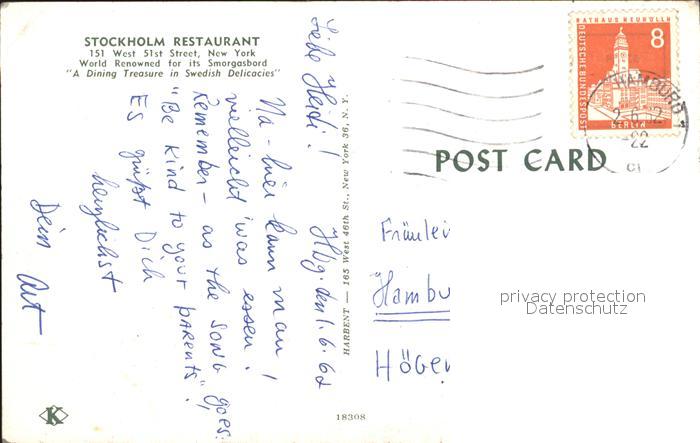 STOCKHOLM RESTAURANT
151 West 51st Street, New York
World Renowned for its Smorgasbord
"A Dining Treasure in Swedish Delicacies"
Hbg. den 1.6.62
Liebe Heidi!
Na - hier kann man
vielleicht was essen!
Remember - as the song goes:
"Be kind to your parents"!
Es grüßt Dich
herzlichst
Dein Art
HARBENT — 165 West 46th St., New York 36, N. Y.
18308
K
POST CARD
RATHAUS NEUKÖLLN
DEUTSCHE BUNDESPOST
8
BERLIN
HAMBURG
2.-6.62
-22
Fräulei
Hambu
Höge
privacy protection
Datenschutz